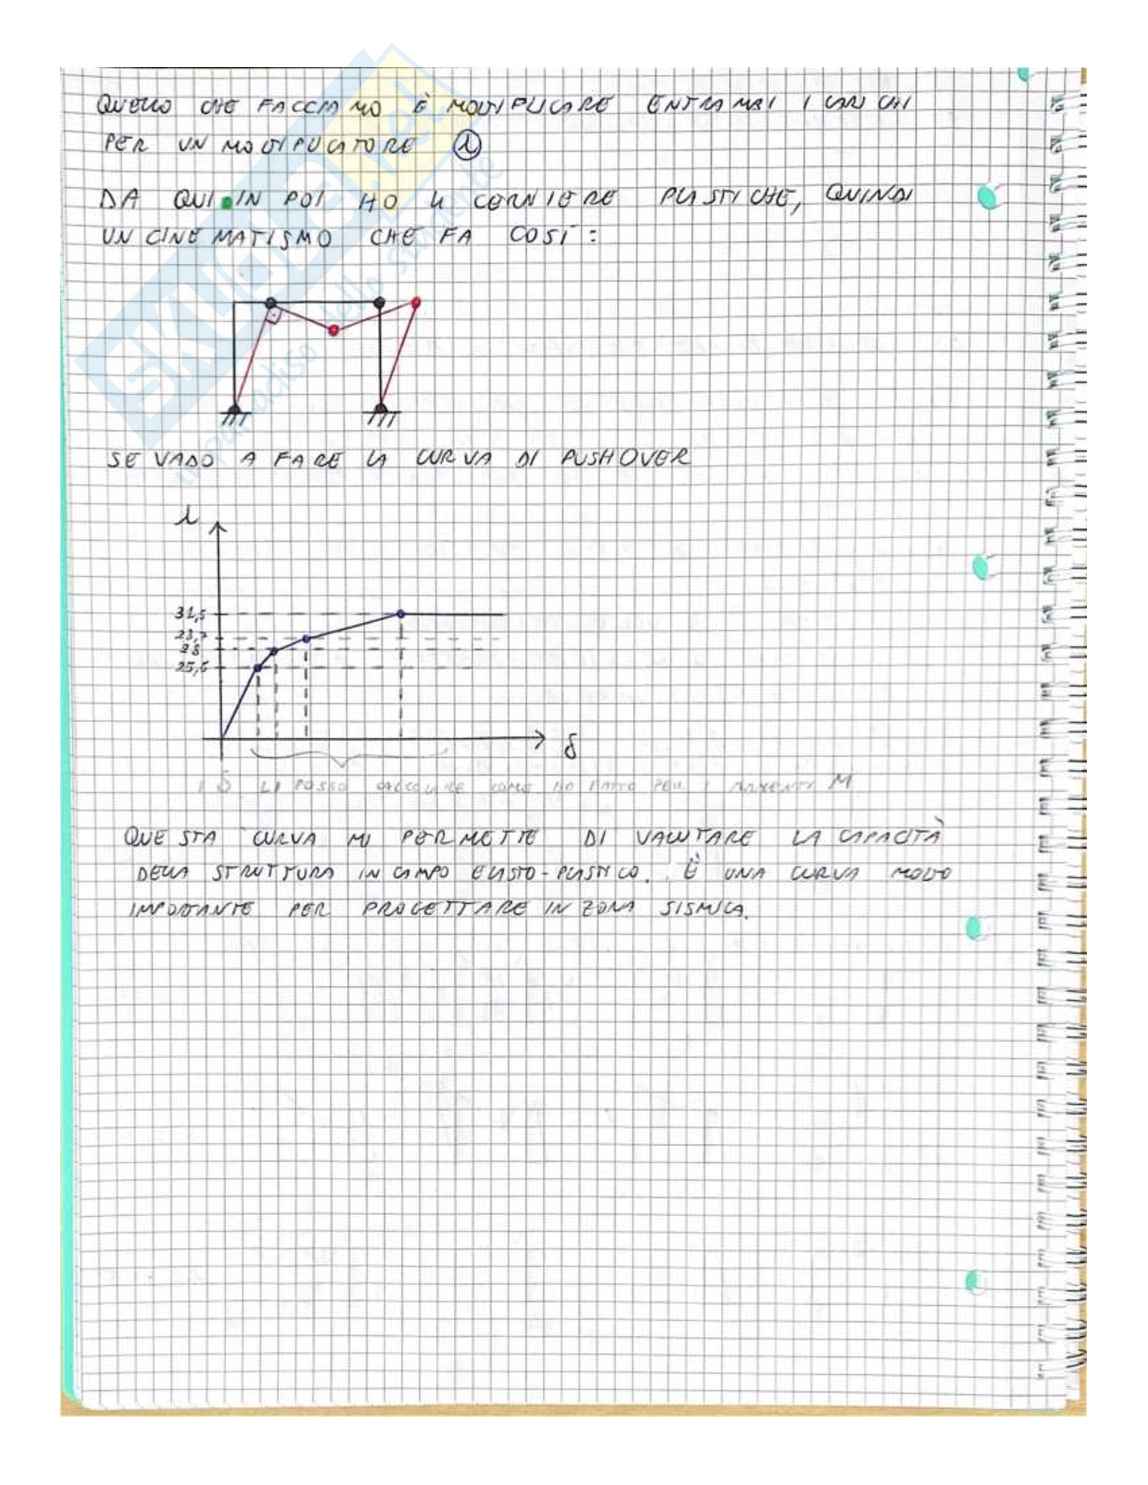 QUELLO CHE FACCIAMO È MOLTIPLICARE ENTRAMBI I CARICHI
PER UN MOLTIPLICATORE λ
DA QUI IN POI HO 4 CERNIERE PLASTICHE, QUINDI
UN CINEMATISMO CHE FA COSÌ:
SE VADO A FARE LA CURVA DI PUSHOVER
λ
31,5
28
25,6
δ
I δ LI POSSO CALCOLARE COME HO FATTO PER I MOMENTI M
QUESTA CURVA MI PERMETTE DI VALUTARE LA CAPACITÀ
DELLA STRUTTURA IN CAMPO ELASTO-PLASTICO. È UNA CURVA MOLTO
IMPORTANTE PER PROGETTARE IN ZONA SISMICA.